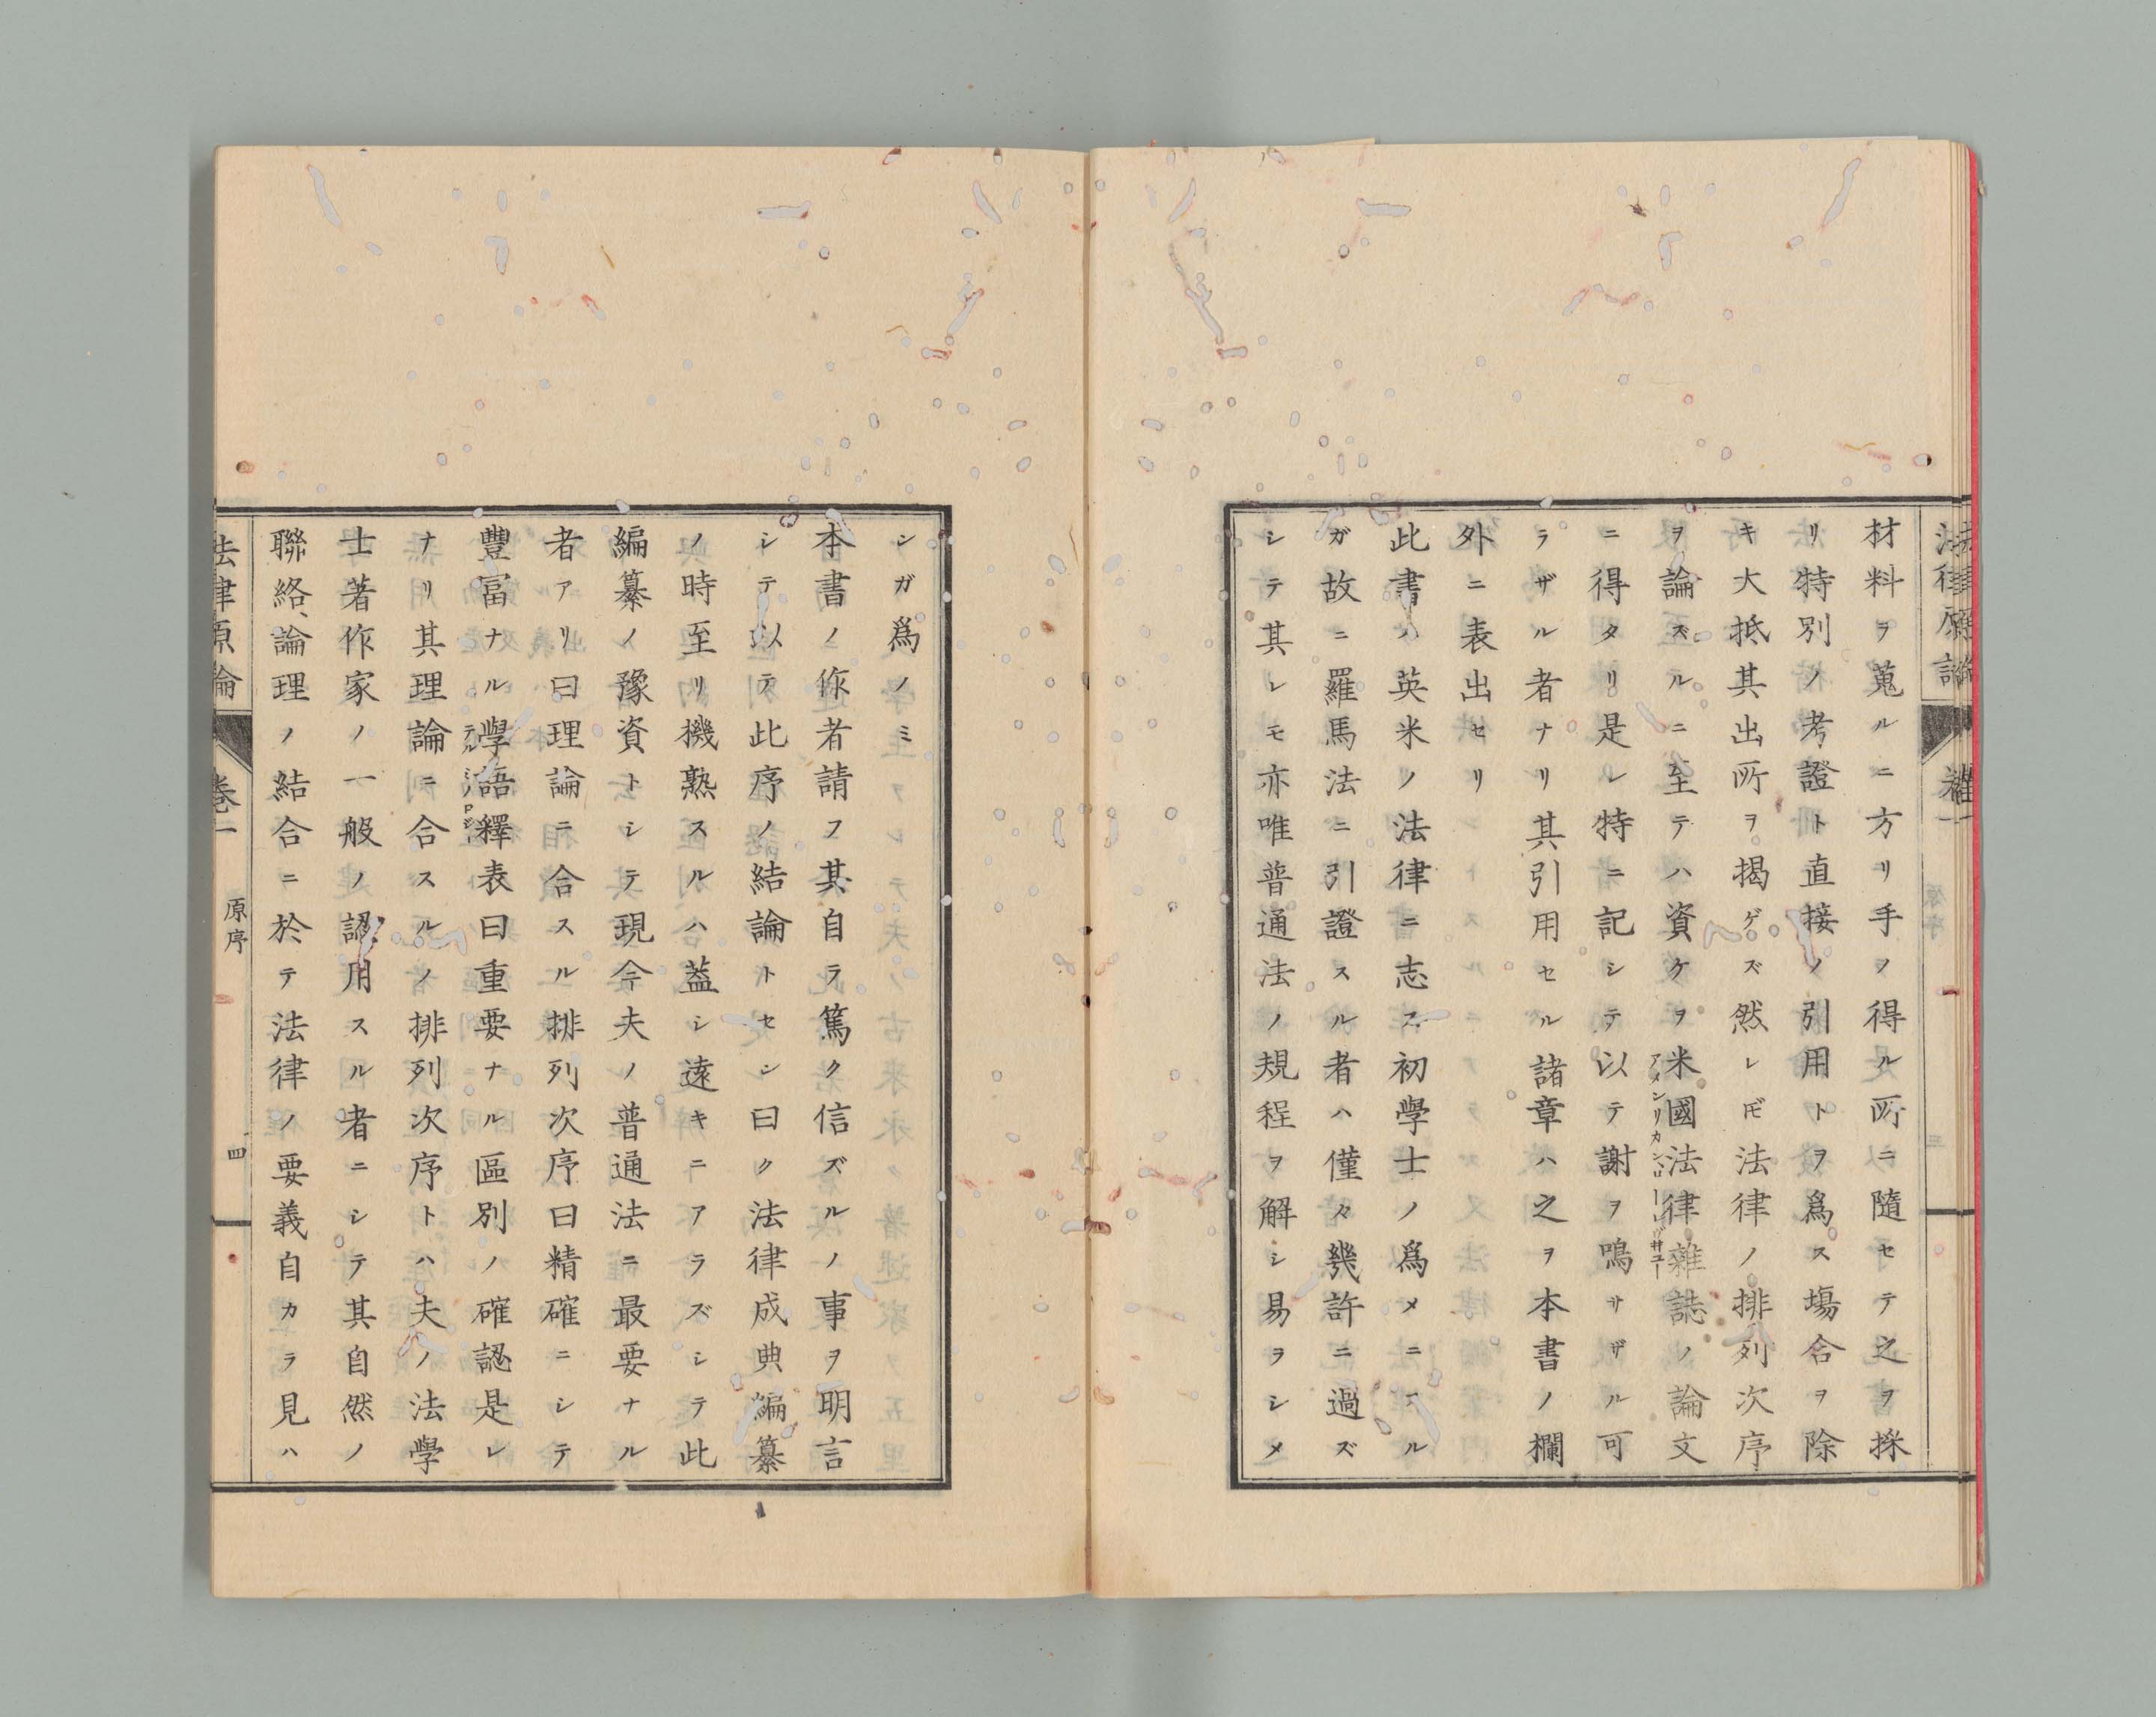 材料ヲ蒐ルニ方リ手ヲ得ル所ニ隨セテ之ヲ採
リ特別ノ考證ト直接ノ引用トヲ爲ス塲合ヲ除
キ大抵其出所ヲ揭ゲズ然レ𪜈法律ノ排列次序
ヲ論ズルニ至テハ資ケヲ米國法律雜誌ノ論文
ニ得タリ是レ特ニ記シテ以テ謝ヲ鳴サザル可
ラザル者ナリ其引用セル諸章ハ之ヲ本書ノ欄
外ニ表出セリ
此書ハ英米ノ法律ニ志ス初學士ノ爲メニスル
ガ故ニ羅馬法ニ引證スル者ハ僅々幾許ニ過ズ
シテ其レモ亦唯普通法ノ規程ヲ解シ易ラシメ
シガ爲ノミ
本書ノ作者請フ其自ラ篤ク信ズルノ事ヲ明言
シテ以テ此序ノ結論トセシ曰ク法律成典編纂
ノ時至リ機熟スルハ蓋シ遠キニアラズシテ此
編纂ノ豫資トシテ現今夫ノ普通法ニ最要ナル
者アリ曰理論ニ合スル排列次序曰精確ニシテ
豐富ナル學語釋表曰重要ナル區別ノ確認是レ
ナリ其理論ニ合スルノ排列次序トハ夫ノ法學
士著作家ノ一般ノ認用スル者ニシテ其自然ノ
聯絡、論理ノ結合ニ於テ法律ノ要義自カラ見ハ
法律原論
卷一
原序
四